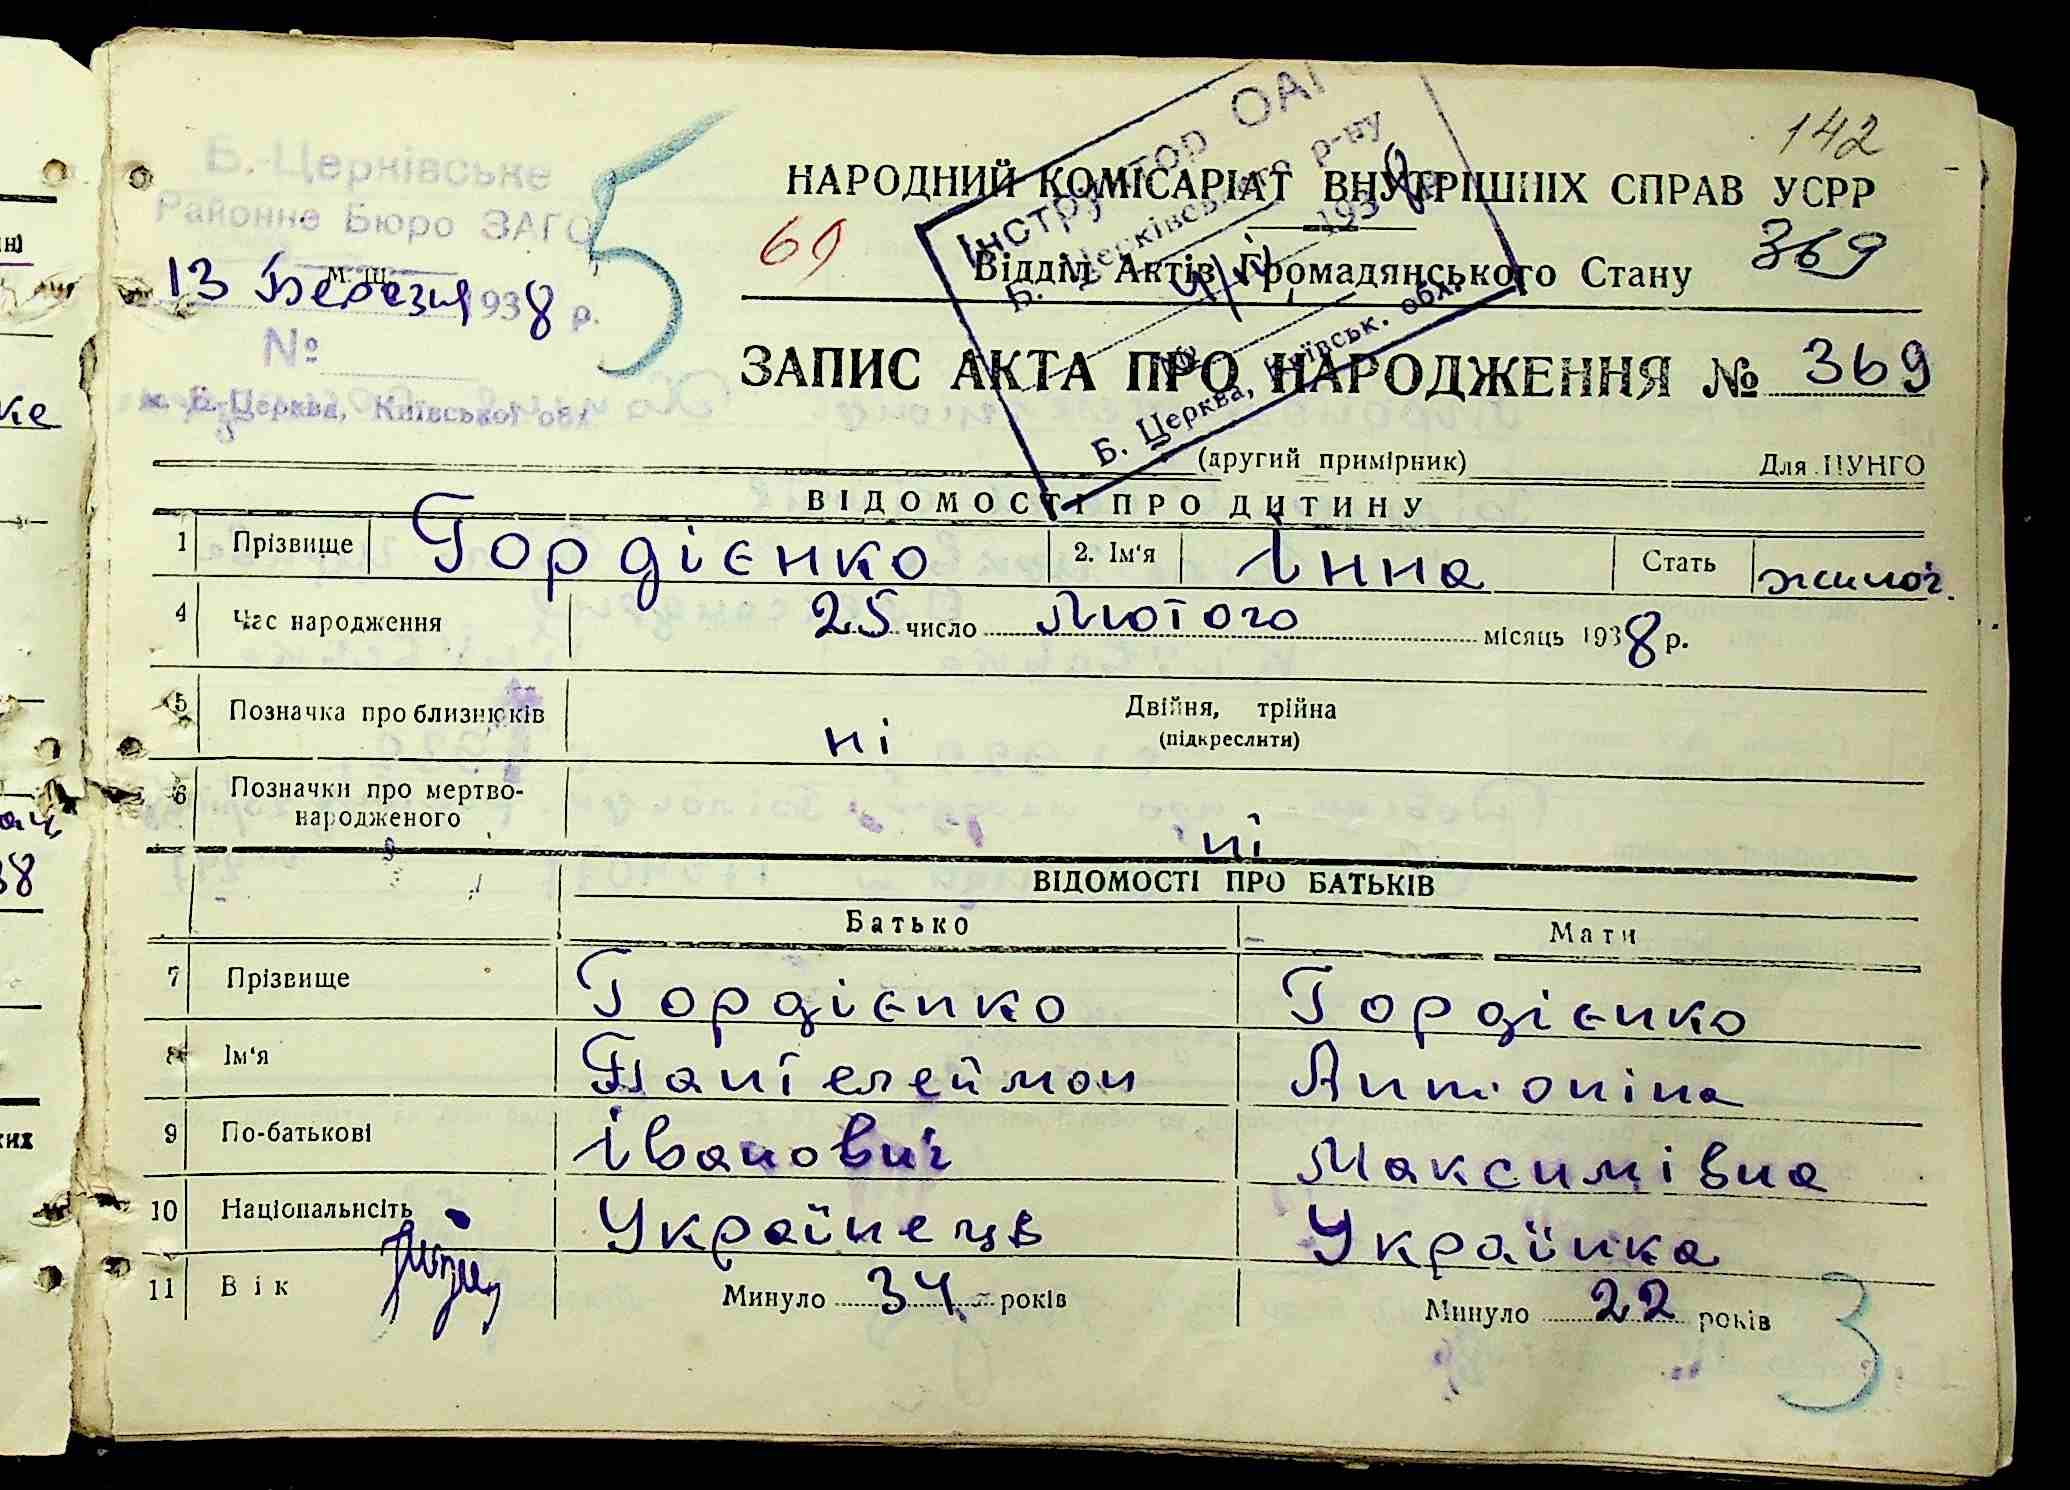 142
Б.-Церківське
Районне Бюро ЗАГС
13 Березня 1938 р.
№
м. Б.-Церква, Київської обл
5
НАРОДНИЙ КОМІСАРІАТ ВНУТРІШНІХ СПРАВ УСРР
69
Відділ Актів Громадянського Стану
369
Інструктор ОАГ
Б. Церківського р-ну
193
Б. Церква, Київськ. обл.
ЗАПИС АКТА ПРО НАРОДЖЕННЯ № 369
(другий примірник) Для ЦУНГО
ВІДОМОСТІ ПРО ДИТИНУ
1 Прізвище Гордієнко 2. Ім'я Інна Стать жіноч.
4 Час народження 25 число Лютого місяць 1938 р.
5 Позначка про близнюків ні Двійня, трійна
(підкреслити)
6 Позначки про мертво-
народженого ні
ВІДОМОСТІ ПРО БАТЬКІВ
Батько Мати
7 Прізвище Гордієнко Гордієнко
8 Ім'я Пантелеймон Антоніна
9 По-батькові Іванович Максимівна
10 Національність Українець Українка
11 Вік Минуло 34 років Минуло 22 років
3
ке
38
них